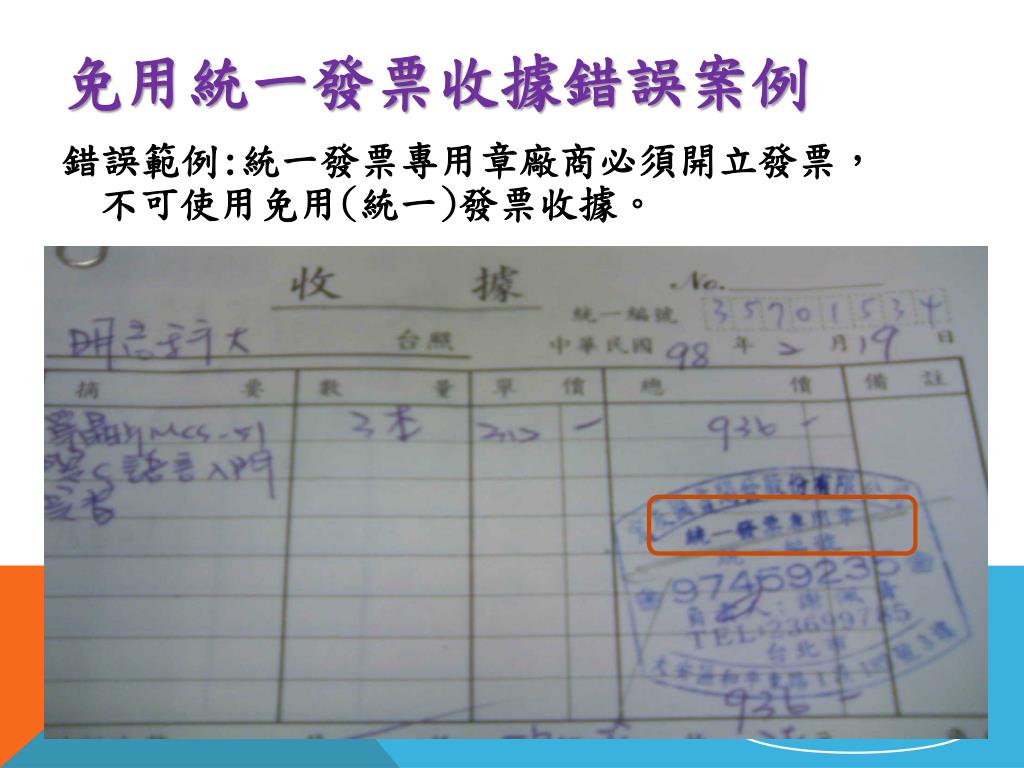 免用統一發票收據錯誤案例
錯誤範例:統一發票專用章廠商必須開立發票，
不可使用免用(統一)發票收據。
收 據
No.
統一編號 35701534
明新科大 台照
中華民國 98 年 2 月 19 日
摘 要 數 量 單 價 總 價 備 註
3本 312 936
語言入門
統一發票專用章
統一編號
97459235
負責人:
TEL:23699785
台北市
936